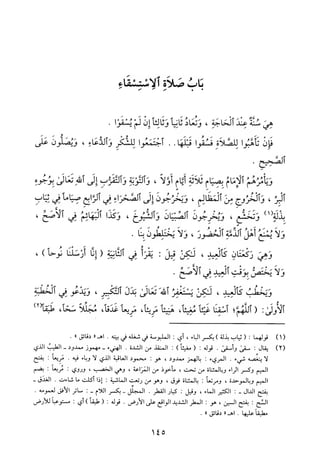 بَابُ صَلَاةِ الِاسْتِسْقَاءِ
هِيَ سُنَّةٌ عِنْدَ الْحَاجَةِ ، وَتُعَادُ ثَانِياً وَثَالِثاً إِنْ لَمْ يُسْقَوْا .
فَإِنْ تَأَهَّبُوا لِلصَّلَاةِ فَسُقُوا قَبْلَهَا . . اجْتَمَعُوا لِلشُّكْرِ وَالدُّعَاءِ ، وَيُصَلُّونَ عَلَى
الصَّحِيحِ .
وَيَأْمُرُهُمُ الْإِمَامُ بِصِيَامِ ثَلَاثَةِ أَيَّامٍ أَوَّلاً ، وَالتَّوْبَةِ وَالتَّقَرُّبِ إِلَى اللهِ تَعَالَىٰ بِوُجُوهِ
الْبِرِّ ، وَالْخُرُوجِ مِنَ الْمَظَالِمِ ، وَيَخْرُجُونَ إِلَى الصَّحْرَاءِ فِي الرَّابِعِ صِيَاماً فِي ثِيَابِ
بِذْلَةٍ(١) وَتَخَشُّعٍ ، وَيُخْرِجُونَ الصِّبْيَانَ وَالشُّيُوخَ ، وَكَذَا الْبَهَائِمُ فِي الْأَصَحِّ ،
وَلَا يُمْنَعُ أَهْلُ الذِّمَّةِ الْحُضُورَ ، وَلَا يَخْتَلِطُونَ بِنَا .
وَهِيَ رَكْعَتَانِ كَالْعِيدِ ، لَكِنْ قِيلَ : يَقْرَأُ فِي الثَّانِيَةِ ( إِنَّا أَرْسَلْنَا نُوحاً ) ،
وَلَا يَخْتَصُّ بِوَقْتِ الْعِيدِ فِي الْأَصَحِّ .
وَيَخْطُبُ كَالْعِيدِ ، لَكِنْ يَسْتَغْفِرُ اللهَ تَعَالَىٰ بَدَلَ التَّكْبِيرِ ، وَيَدْعُو فِي الْخُطْبَةِ
الْأُولَىٰ : ( اللَّهُمَّ ؛ اسْقِنَا غَيْثاً مُغِيثاً ، هَنِيئاً مَرِيئاً ، مَرِيعاً غَدَقاً ، مُجَلِّلاً سَحّاً ، طَبَقاً(٢)
(١) قولهما : ( ثياب بذلة ) بكسر الباء ، أي : الملبوسة في شغله في بيته . اهـ « دقائق » .
(٢) يقال : سقى وأسقى . قوله : ( مغيثاً ) : المنقذ من الشدة . الهنيء ـ مهموز ممدود ـ الطيب الذي
لا ينغصه شيء . المريء : بالهمز ممدود ، هو : محمود العاقبة الذي لا وباء فيه . مَريعاً : بفتح
الميم وكسر الراء وبالمثناة من تحت ، مأخوذ من المَرَاعة ، وهي الخصب ، وروي : مُربعاً : بضم
الميم وبالموحدة ، ومرتعاً : بالمثناة فوق ، وهو من رتعت الماشية : إذا أكلت ما شاءت . الغدق ـ
بفتح الدال ـ : الكثير الماء ، وقيل : كبار القطر . المجلِّل ـ بكسر اللام ـ : ساتر الأفق لعمومه .
السَّحّ : بفتح السين ، هو : المطر الشديد الواقع على الأرض . قوله : ( طبقاً ) أي : مستوعباً للأرض
مطبقاً عليها . اهـ « دقائق » .
١٤٥